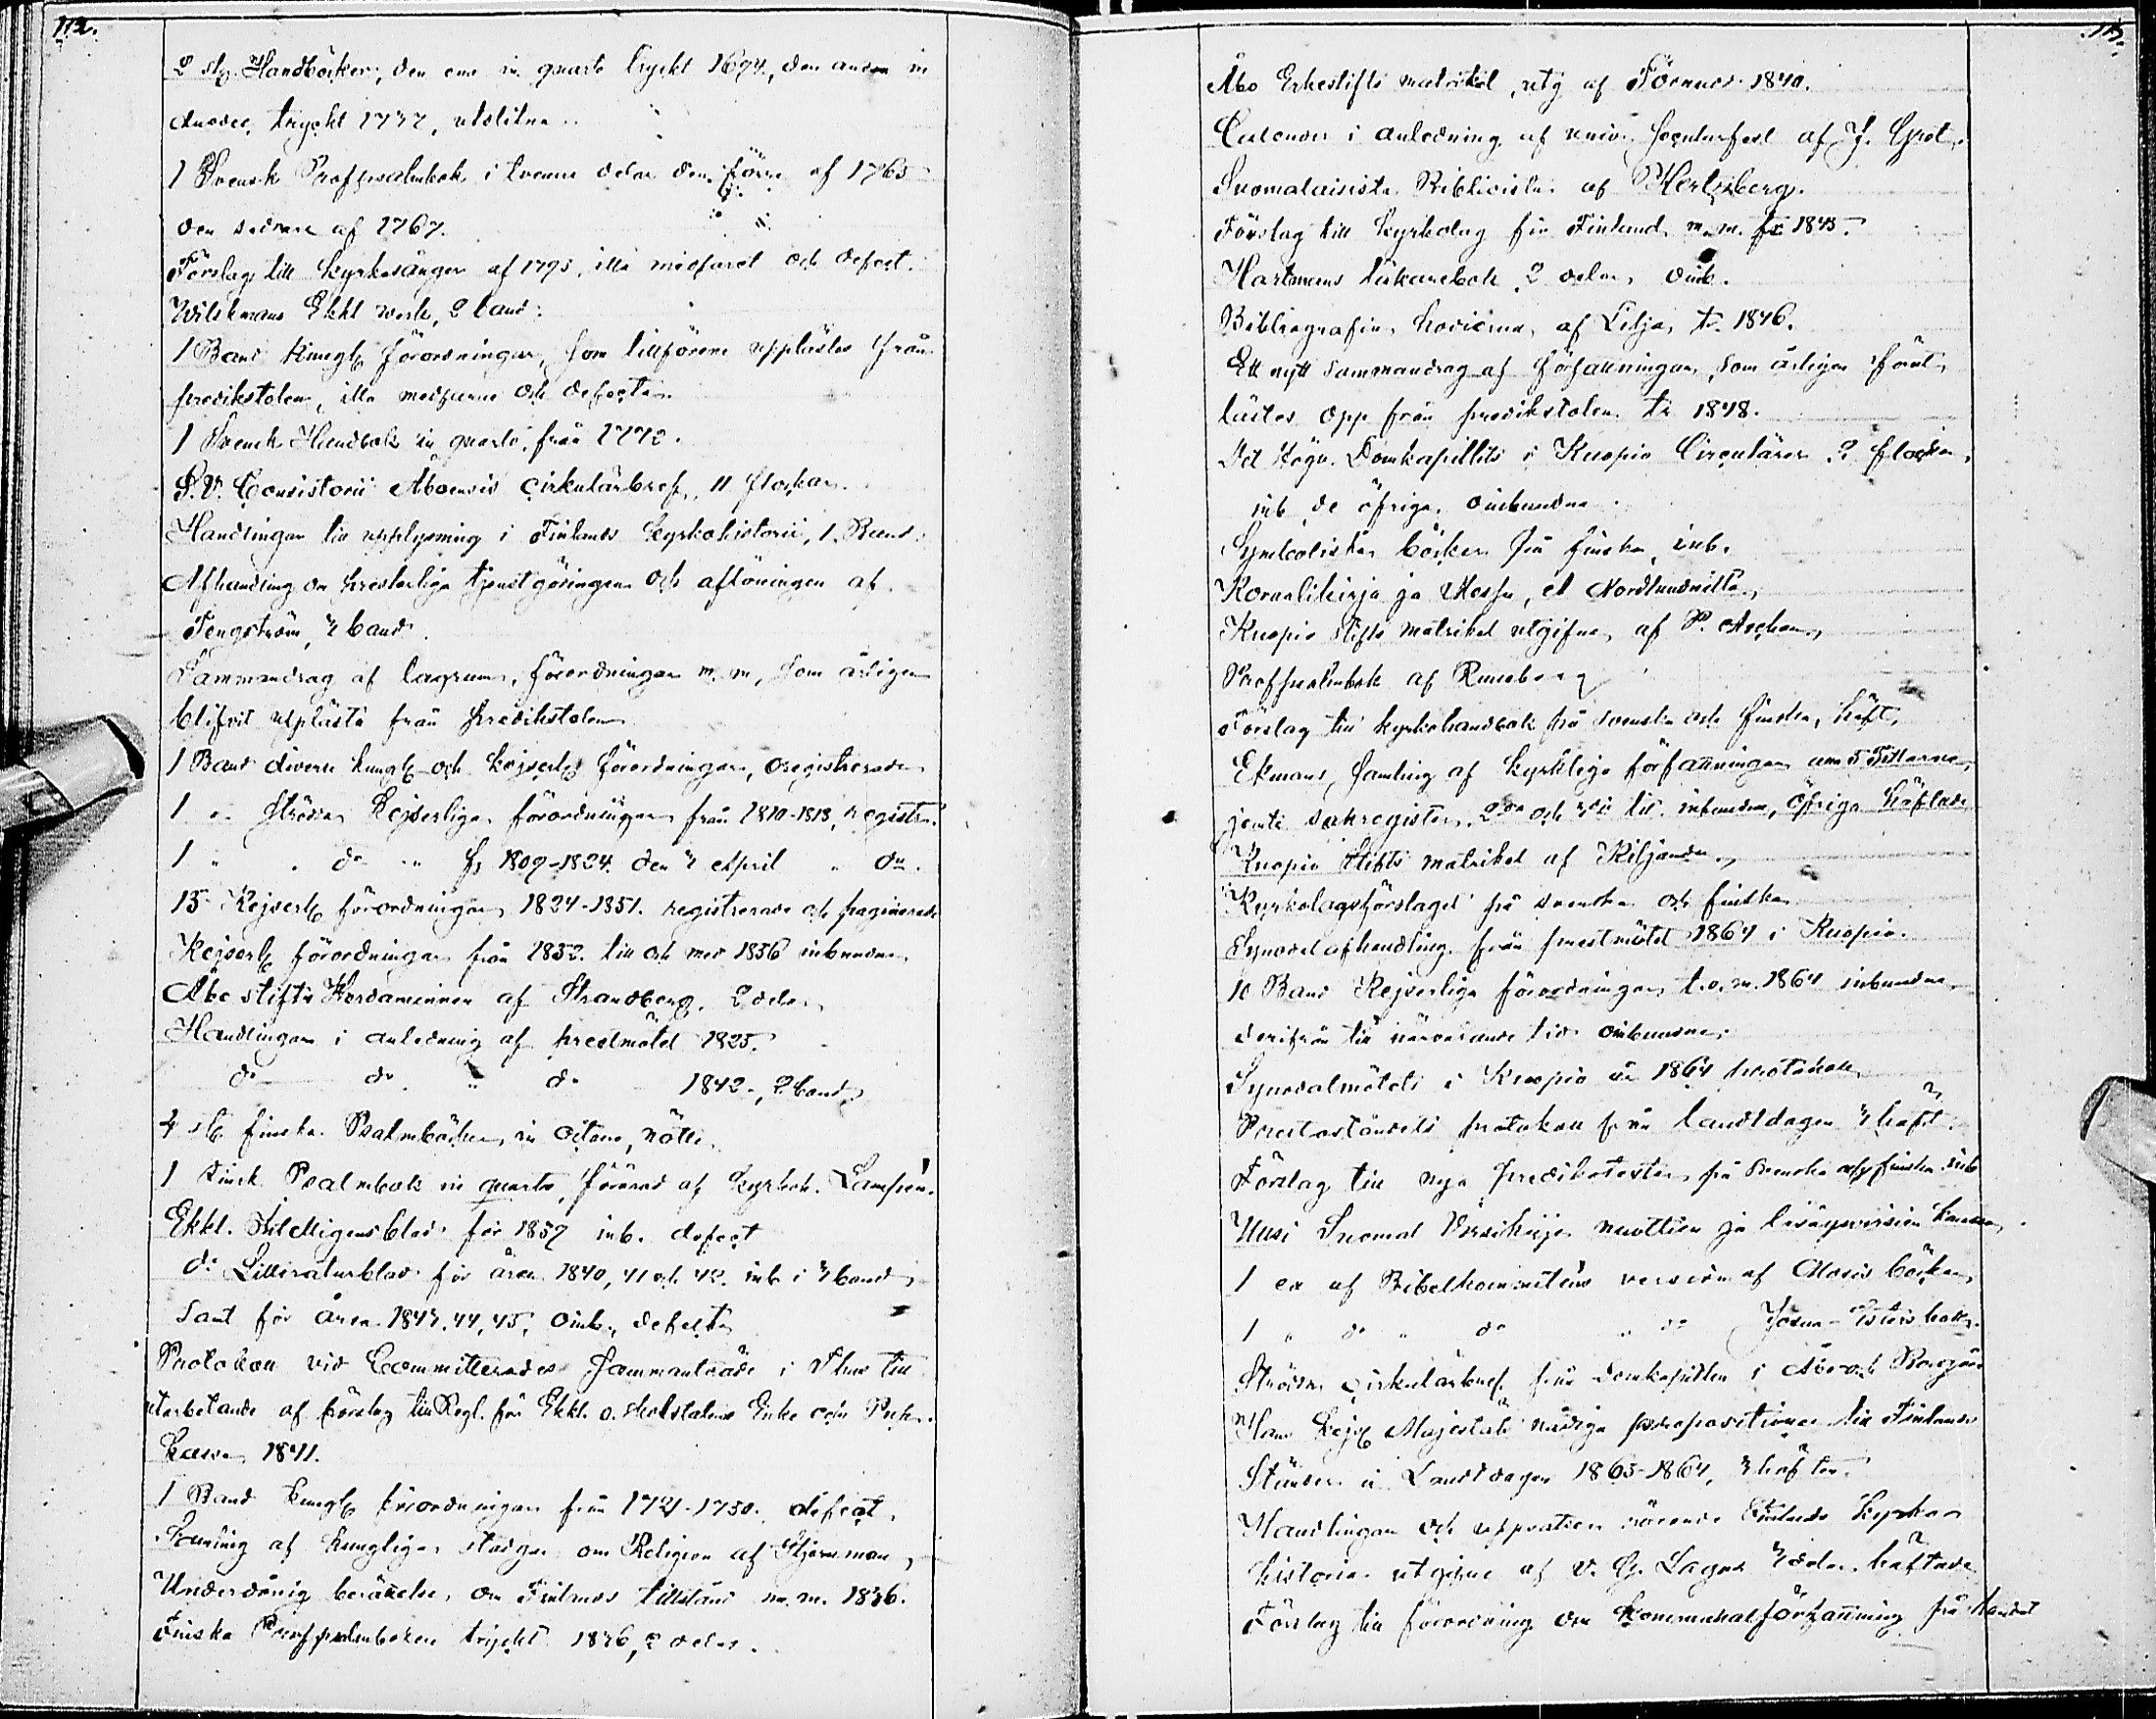 112.
2 st. Handböcker, den ena in quarto tryckt 1694, den andra in
duodec, tryckt 1737, utslitna
1 Svensk Profpsalmbok i tvenne delar den förre af 1765
den sednare af 1767.
Förslag till Kyrkosånger af 1795, illa medfaret och defect.
Wilskmans Ekkl. verk, 2 band.
1 Band Kungl. förordningar, som tillförene upplästes från
predikstolen, illa medfarne och defecta
1 Svensk Handbok in quarto, från 1772.
S. V. Consistorii Aboensis Cirkulärbref, 11 flockar.
Handlingar till upplysning i Finlands Kyrkohistorie, 1. Band.
Afhandling om presterliga tjenstgöringen och aflöningen af
Tengström, 3 band.
Sammandrag af lagrum, förordningar m. m., som årligen
blifvit upplästa från predikstolen
1 Band diverse kungl. och kejserl. förordningar, oregistrerade
1 " strödda Kejserliga förordningar från 1810-1813, registr.
1 " " do " fr. 1809-1824. den 3 April " do.
15 Kejserl. förordningar 1824-1851. registrerade och paginerade
Kejserl. förordningar från 1852. till och med 1856 inbundna
Åbo stifts Herdaminnen af Strandberg, 2 delar
Handlingar i anledning af prestmötet 1825.
do do " do 1842, 2 band
4 st. finska Psalmböcker, in octavo, nötta
1 Finsk Psalmbok in quarto, förärad af Kyrkoh. Lampén.
Ekkl. Intelligensblad för 1839 inb. defect
do Litteraturblad för åren 1840, 41 och 42. inb. i 3 band
samt för åren 1843, 44, 45, oinb., defecta
Protokoll vid Committerades sammanträde i Åbo till
utarbetande af förslag till Regl. för Ekkl. o. skolstatens Enke och Pup.
Kassa 1841.
1 Band Kungl. förordningar från 1721-1730. defect.
Samling af Kungliga stadgar om Religion af Stjernman,
Underdånig berättelse om Finlands tillstånd m. m. 1836.
Finska Profpsalmboken tryckt 1836, 2 delar.
113.
Åbo Erkestifts matrikel, utg. af 1840.
Calender i anledning af univ. secularfest af J. Grot.
Suomalaisista Biblioista af Hertzberg.
Förslag till Kyrkolag för Finland m. m. fr. 1845.
Hartmans Läkarebok, 2 delar, oinb.
Bibliografin hodierna, af Lilja, tr. 1846.
Ett nytt sammandrag af författningar, som årligen förut
lästes opp från predikstolen. tr 1848.
Det Högv. Domkapitlets i Kuopio Circulärer 2 flockar,
inb, de öfriga oinbundna
Symboliska böcker på finska, inb.
Koraalikirja ja Messu, af Nordlundnilta
Kuopio stifts matrikel utgifven af P. Aschan,
Profpsalmbok af Runeberg
Förslag till kyrkohandbok på svenska och finska, häft.
Ekmans, samling af kyrkliga författningar,
jemte sakregister, 2dra och 3dje till inbundna, öfriga häftade
Kuopio Stifts matrikel af Kiljander,
Kyrkolagsförslaget på svenska och finska
Synodalafhandling från prestmötet 1864 i Kuopio.
10 Band Kejserliga förordningar t. o. m. 1864 inbundna
derifrån till närvarande tid oinbundna.
Synodalmötets i Kuopio år 1864 protokoll
Prestaståndets protokoll från landtdagen 3 häft.
Förslag till nya predikotexter på svenska och finska inb
Uusi Suomal Virsikirja nuottien ja lisäysvirsien kanssa,
1 ex af Bibelkommiténs version af Mosis böcker,
1 " do " do " do Josua - Esters bok.
Strödda cirkulärbref från domkapitlen i Åbo och Borgå
Hans Kejs. Majestäts nådiga propositioner till Finlands
Ständer å Landtdagen 1863-1864, 3 häften.
Handlingar och uppsatser rörande Finlands Kyrko
historia utgifne af V. G. Lagus 3 delar, häftade
Förslag till förordning om Kommunalförfattning på landet